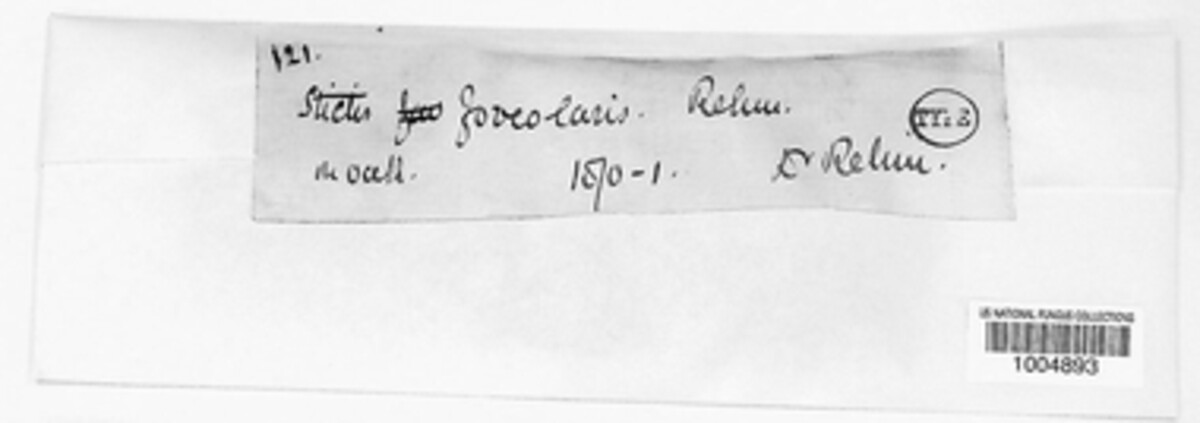 121.
Stictis foveolaris. Rehm. TYPE
on oak. 1870-1. Dr Rehm.
US NATIONAL FUNGUS COLLECTIONS
1004893